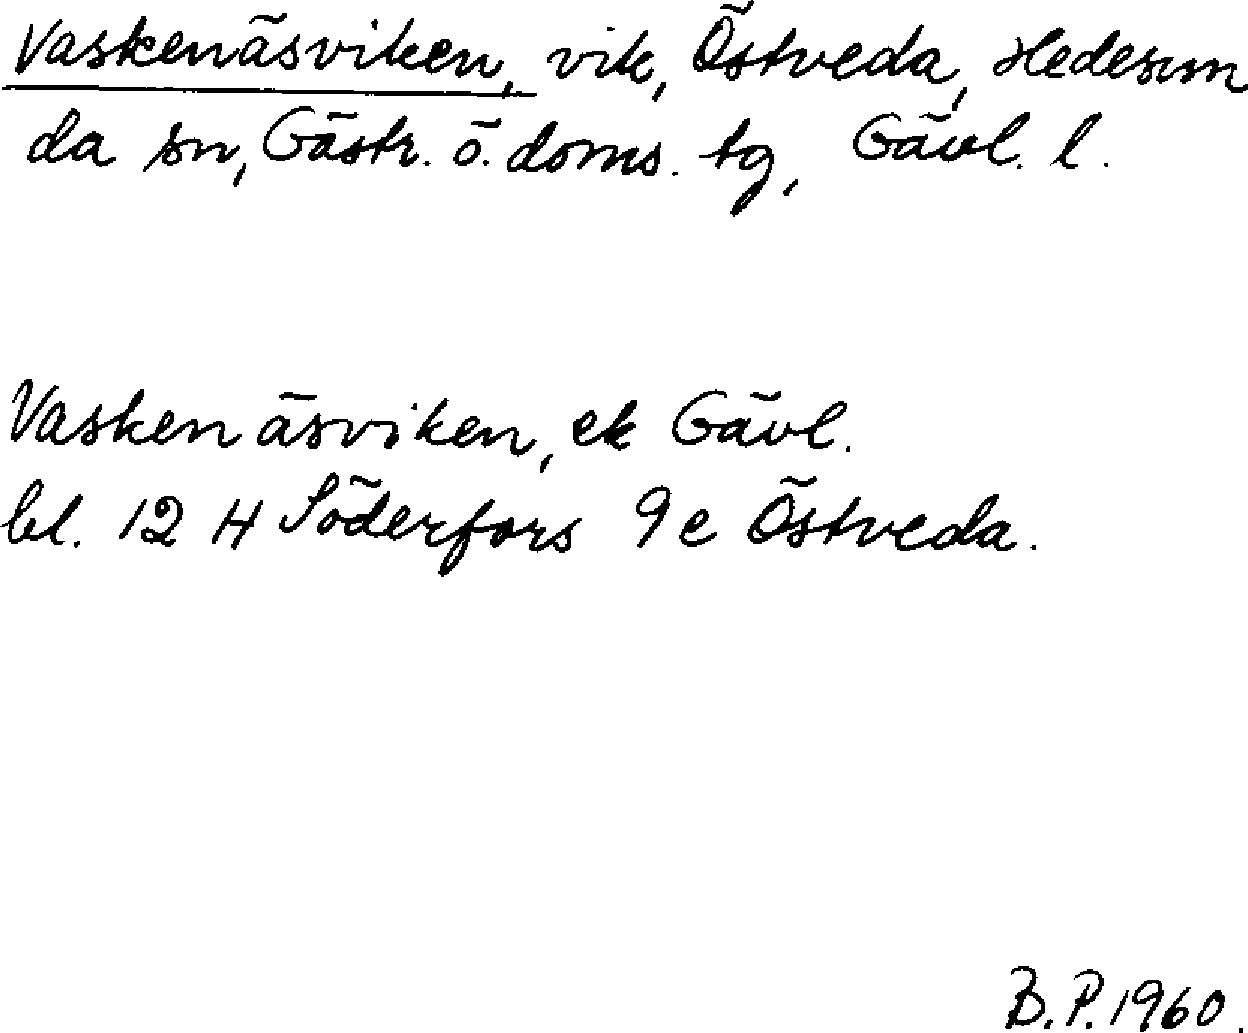 Vaskenäsviken, vik, Östveda, Hedesun
da sn, Gästr. ö. doms. tg, Gävl. l.
Vaskenäsviken, ek Gävl.
bl. 12 H Söderfors 9 e Östveda.
B. P. 1960.